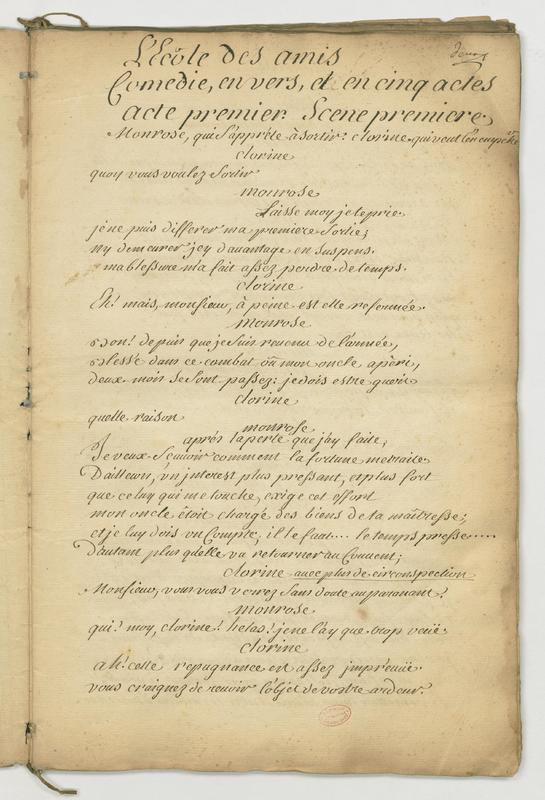 L'Ecôle des amis
Comedie, en vers, et en cinq actes
acte premier. Scene premiere.
Monrose, qui s'apprête à sortir: clorine qui veut l'en empêcher
clorine
quoy vous voulez sortir
monrose
Laisse moy je te prie.
je ne puis differer ma premiere sortie;
ny demeurer jcy d'auantage en suspens.
ma blessure m'a fait assez perdre de temps.
clorine
Eh! mais, monsieur, à peine est elle refermée.
monrose
bon! depuis que je suis reuenu de l'armée,
blessé dans ce combat où mon oncle a péri,
deux mois se sont passez: je dois estre guéri
clorine
quelle raison
monrose
après la perte que j'ay faite,
Je veux sçauoir comment la fortune me traite.
D'ailleurs, vn jnterest plus pressant, et plus fort
que celuy qui me touche, exige cet effort
mon oncle étoit chargé des biens de ta maîtresse;
et je luy dois vn Compte, il le faut... le temps presse....
D'autant plus qu'elle va retourner au Couuent;
clorine auec plus de circonspection
Monsieur, vous vous verrez sans doute auparauant?
monrose
qui? moy, clorine! helas! je ne l'ay que trop veüe
clorine
ah! cette repugnance est assez jmpréuüe.
vous craignez de reuoir l'objet de vostre ardeur?